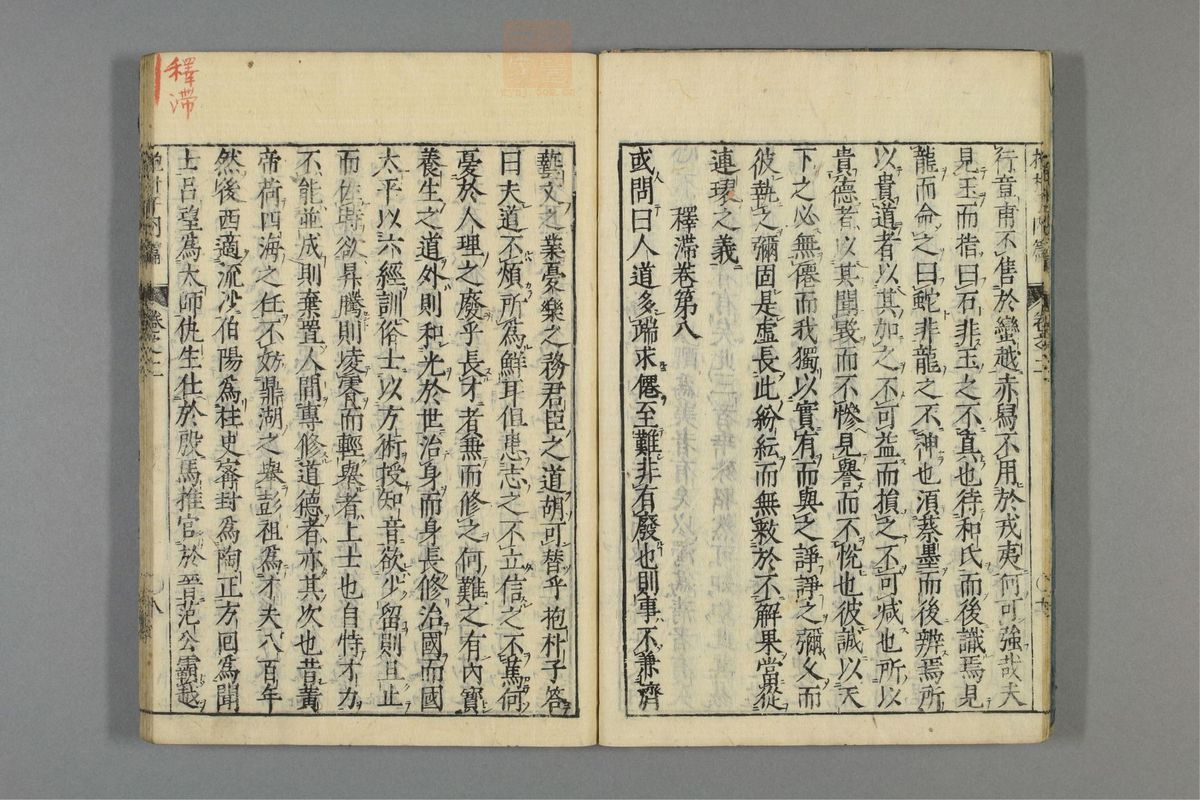 行章甫不售於蠻越赤舄不用於戎夷何可強哉夫
見玉而指曰石非玉之不真也待和氏而後識焉見
龍而命之曰蛇非龍之不神也須蔡墨而後辨焉所
以貴道者以其加之不可益而損之不可減也所以
貴德者以其聞毀而不慘見譽而不悅也彼誠以天
下之必無僊而我獨以實有而與之諍諍之彌久而
彼執之彌固是虛長此紛紜而無救於不解果當從
連環之義
釋滯卷第八
或問曰人道多端求僊至難非有廢也則事不兼濟
藝文之業憂樂之務君臣之道胡可替乎抱朴子答
曰夫道不煩所為鮮耳但患志之不立信之不篤何
憂於人理之廢乎長才者兼而修之何難之有內寶
養生之道外則和光於世治身而身長修治國而國
太平以六經訓俗士以方術授知音欲少留則且止
而佐時欲昇騰則凌霄而輕舉者上士也自恃才力
不能並成則棄置人間專修道德者亦其次也昔黃
帝荷四海之任不妨鼎湖之舉彭祖為才夫八百年
然後西適流沙伯陽為柱史甯封為陶正方回為閭
士呂望為太師仇生仕於殷馬推官於晉范公霸越
釋滯